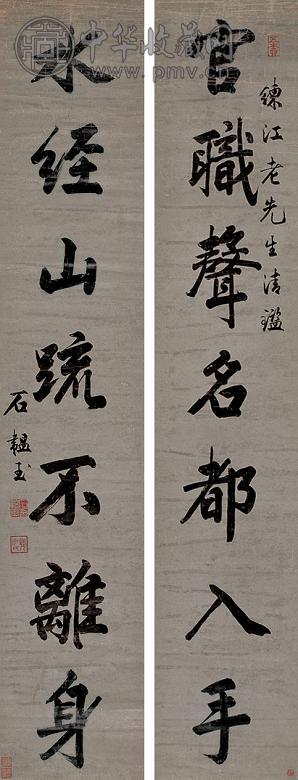 官職聲名都入手
鍊江老先生清鑑
水經山疏不離身
石韞玉
中华收藏网
www.pmv.cn